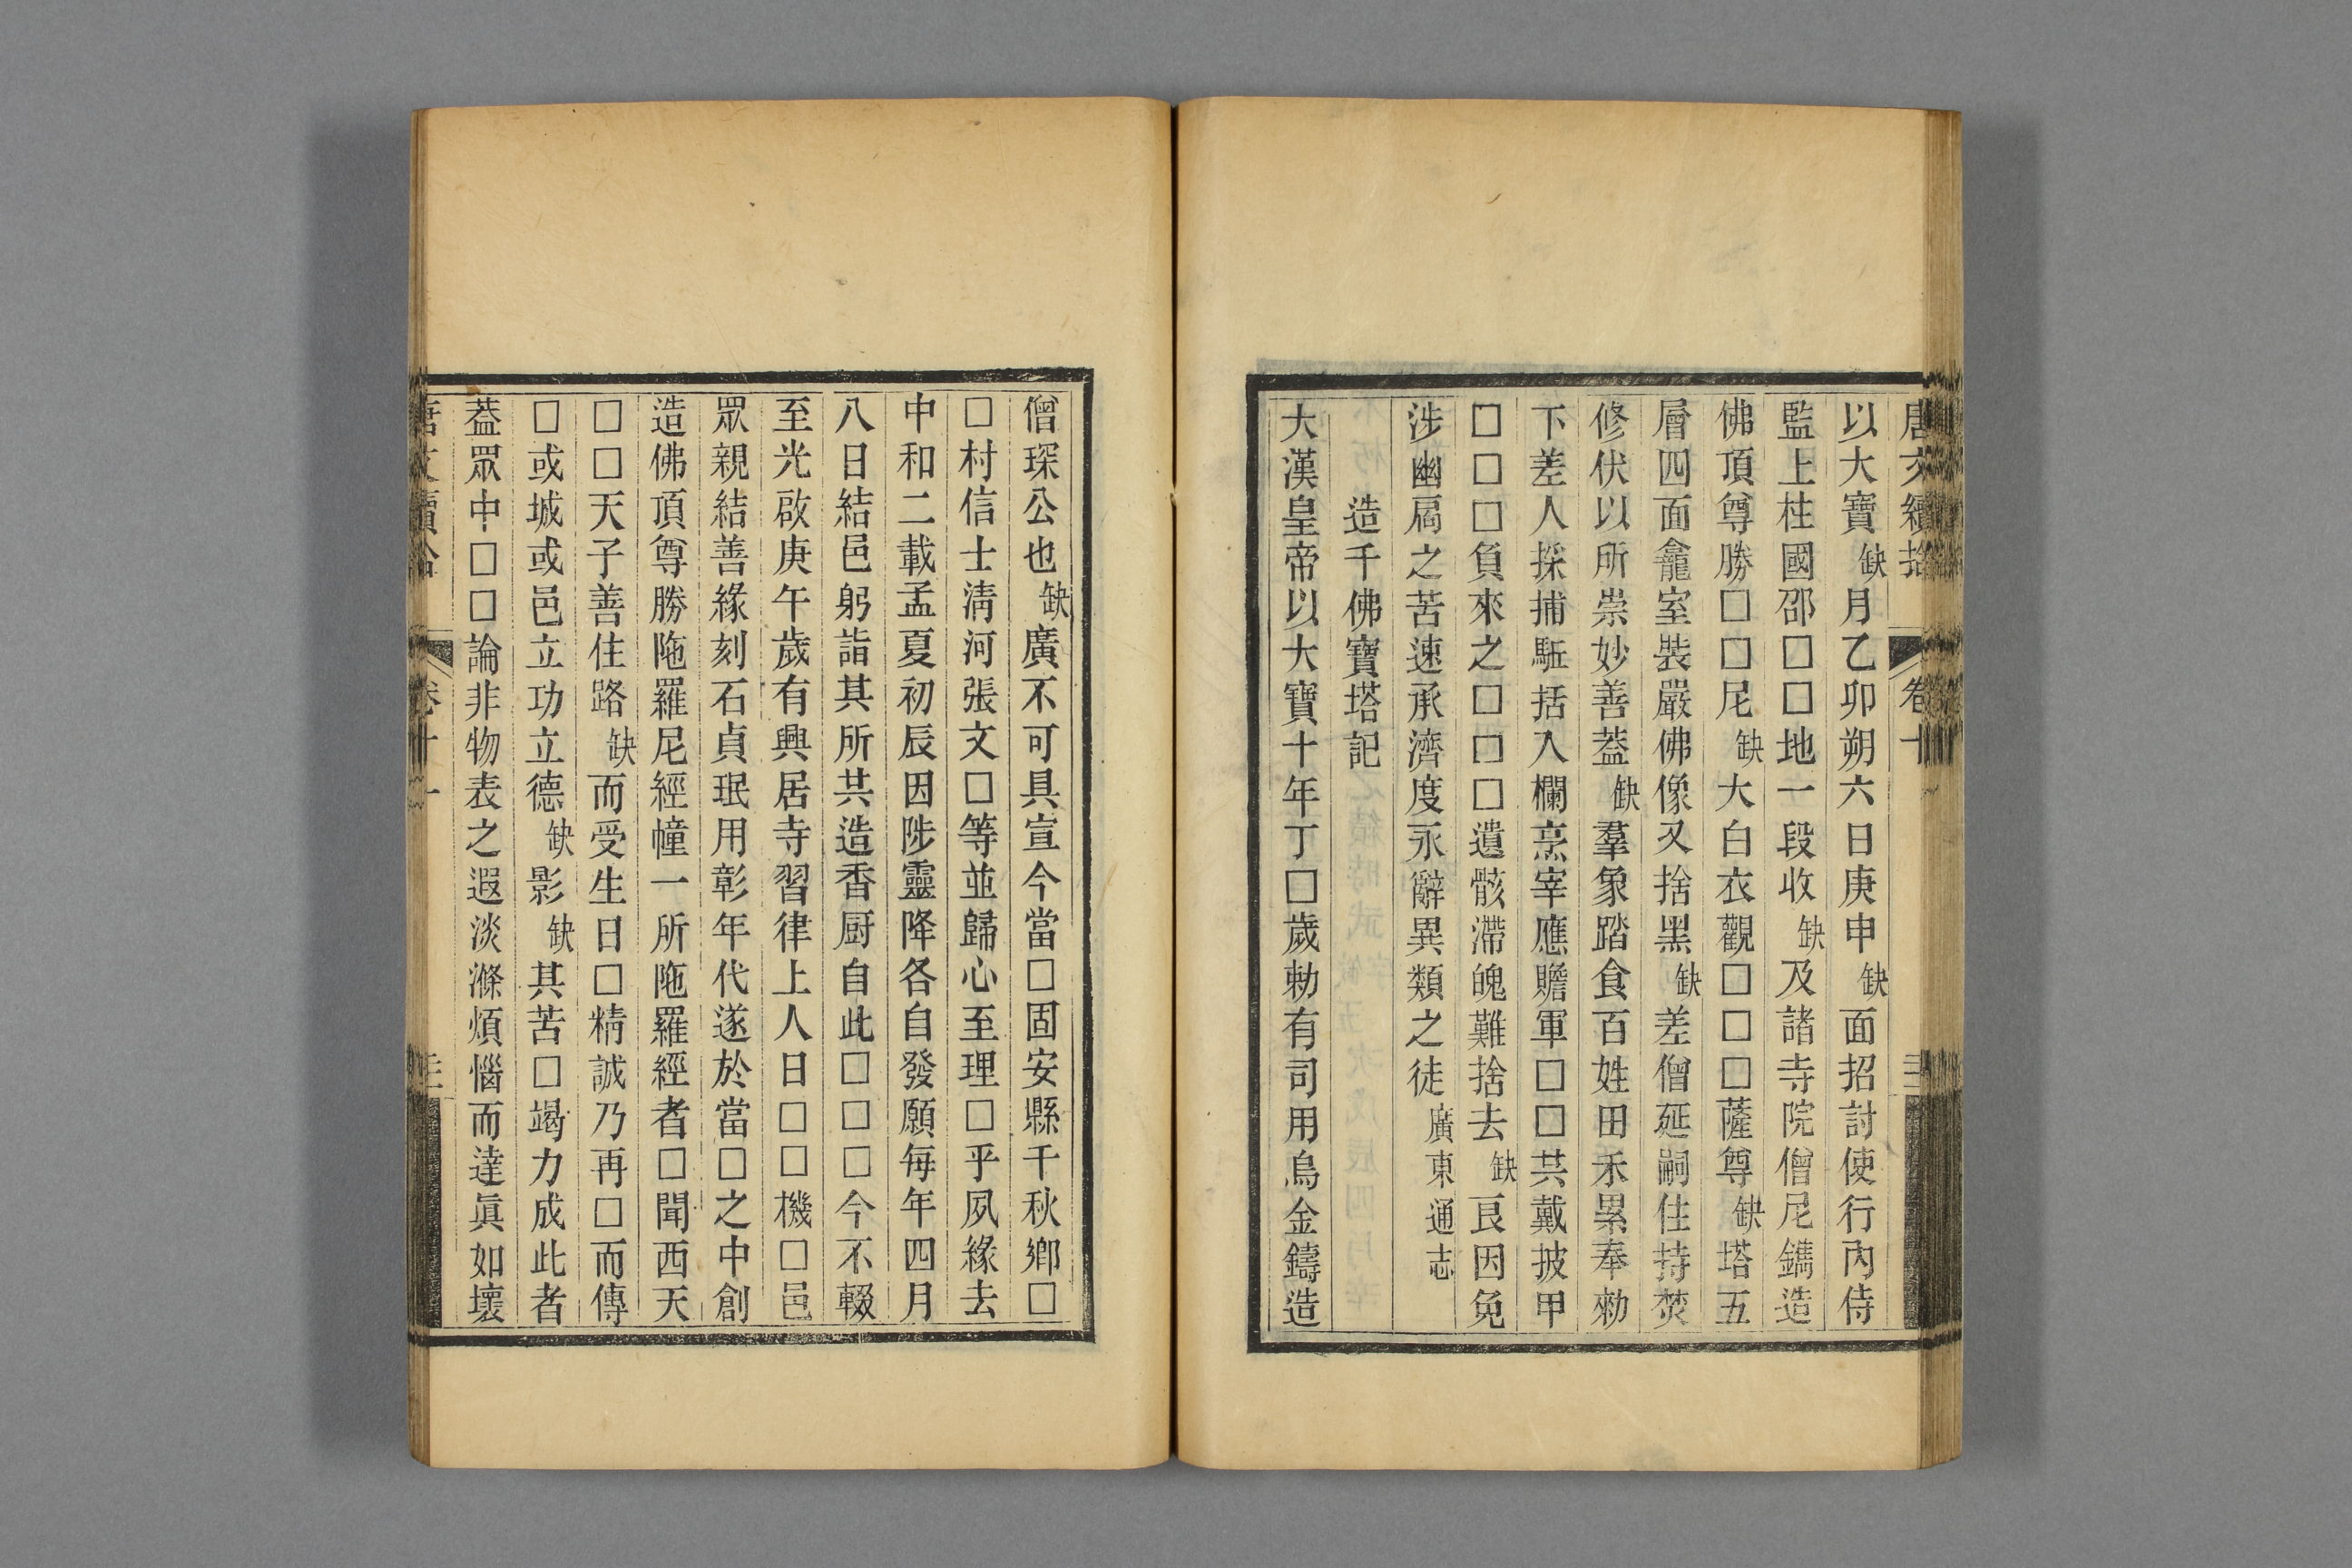 唐文續拾 卷十
以大寶缺月乙卯朔六日庚申缺面招討使行內侍
監上柱國邵□□地一段收缺及諸寺院僧尼鐫造
佛頂尊勝□□尼缺大白衣觀□□□薩尊缺塔五
層四面龕室裝嚴佛像又捨黑缺差僧延嗣住持焚
修伏以所崇妙善蓋缺羣象踏食百姓田禾累奉勑
下差人採捕駈括入欄烹宰應贍軍□□其戴披甲
□□□負來之□□□遺骸滯魄難捨去缺良因免
涉幽扃之苦速承濟度永辭異類之徒廣東通志
造千佛寶塔記
大漢皇帝以大寶十年丁□歲勅有司用烏金鑄造
僧琛公也缺廣不可具宣今當□固安縣千秋鄉□
□村信士清河張文□等並歸心至理□乎夙緣去
中和二載孟夏初辰因陟靈降各自發願每年四月
八日結邑躬詣其所共造香厨自此□□□今不輟
至光啟庚午歲有興居寺習律上人曰□□機□邑
眾親結善緣刻石貞珉用彰年代遂於當□之中創
造佛頂尊勝陁羅尼經幢一所陁羅經者□聞西天
□□天子善住路缺而受生日□精誠乃再□而傳
□或城或邑立功立德缺影缺其苦□竭力成此者
蓋眾中□□論非物表之遐淡滌煩惱而達眞如壞
唐文續拾 卷十一